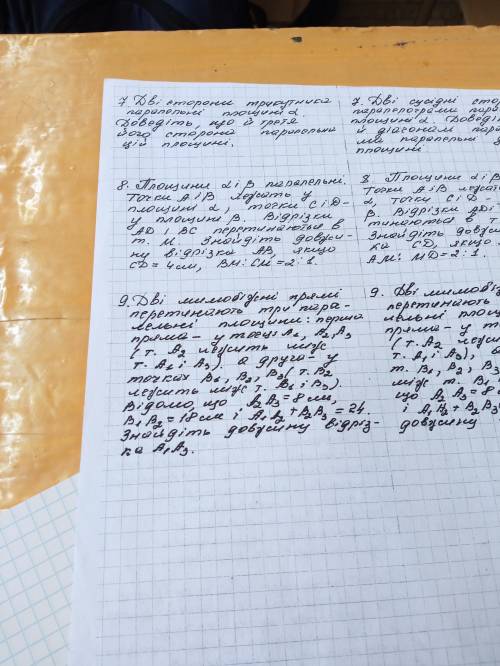 7. Дві сторони трикутника
паралельні площині α.
Доведіть, що й третя
його сторона паралельна
цій площині.
8. Площини α і β паралельні.
Точки A і B лежать у
площині α, точки C і D-
у площині β. Відрізки
AD і BC перетинаються в
т. M. Знайдіть довжи-
ну відрізка AB, якщо
CD = 4см, BM:CM = 2:1.
9. Дві мимобіжні прямі
перетинають три пара-
лельні площини: перша
пряма- у точці A1, A2, A3
(т. A2 лежить між
т. A1 і A3), а друга- у
точках B1, B2, B3 (т. B2
лежить між т. B1 і B3).
Відомо, що A2A3 = 8см,
B1B2 = 18см і A1A2 + B2B3 = 24.
Знайдіть довжину відріз-
ка A1A3.
7. Дві сусідні сто
паралелограма пара
площині α. Доведі
й діагональ пара
ма паралельні
площині
8. Площини α і β
Точки A і B лежать
α, точки C і D -
β. Відрізки
тинаються в
Знайдіть довжи
ка CD, якщо
AM: MD = 2:1.
9. Дві мимобі
перетинають
лельні площ
пряма- у т
(т. A2 леж
т. A1 і A3), а
т. B1, B2, B3
між т. B1
що A2A3 = 8
і A1A2 + B2B3
довжину